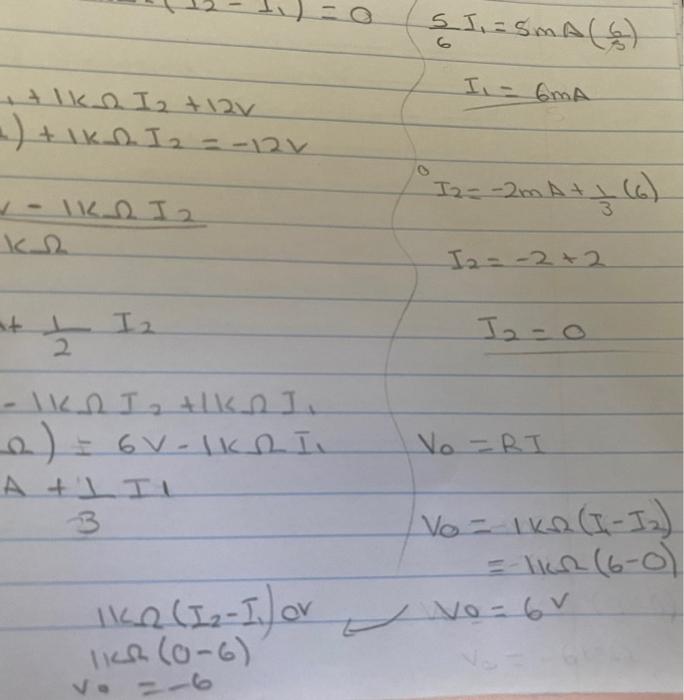 (I2 - I1) = 0
+ 1KΩ I2 + 12V
) + 1KΩ I2 = -12V
- 1KΩ I2
KΩ
+ 1/2 I2
- 1KΩ I2 + 1KΩ I1
Ω) = 6V - 1KΩ I1
A + 1/3 I1
1KΩ(I2 - I1) or
1KΩ(0-6)
Vo = -6
5/6 I1 = 5mA(6/5)
I1 = 6mA
I2 = -2mA + 1/3 (6)
I2 = -2 + 2
I2 = 0
Vo = RI
Vo = 1KΩ(I1 - I2)
= 1KΩ(6-0)
Vo = 6V